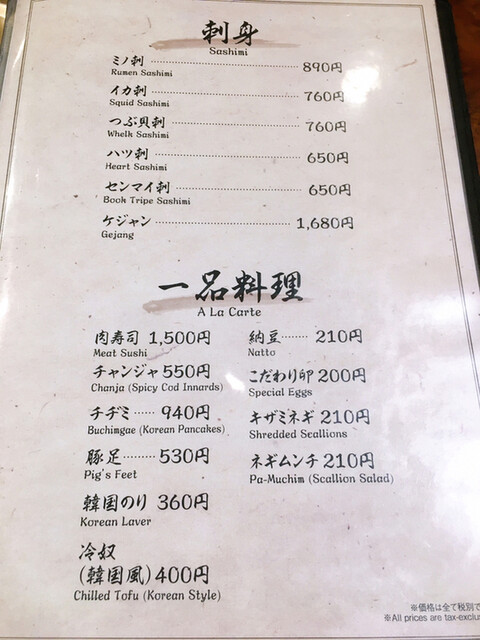 刺身
Sashimi
ミノ刺 890円
Rumen Sashimi
イカ刺 760円
Squid Sashimi
つぶ貝刺 760円
Whelk Sashimi
ハツ刺 650円
Heart Sashimi
センマイ刺 650円
Book Tripe Sashimi
ケジャン 1,680円
Gejang
一品料理
A La Carte
肉寿司 1,500円
Meat Sushi
チャンジャ 550円
Chanja (Spicy Cod Innards)
チヂミ 940円
Buchimgae (Korean Pancakes)
豚足 530円
Pig's Feet
韓国のり 360円
Korean Laver
冷奴
(韓国風) 400円
Chilled Tofu (Korean Style)
納豆 210円
Natto
こだわり卵 200円
Special Eggs
キザミネギ 210円
Shredded Scallions
ネギムンチ 210円
Pa-Muchim (Scallion Salad)
※価格は全て税別で
※All prices are tax-exclu